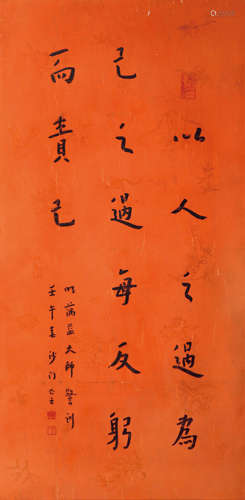 以人之過為
己之過每反躬
而責己
明蕅益大師警訓
壬午春沙門